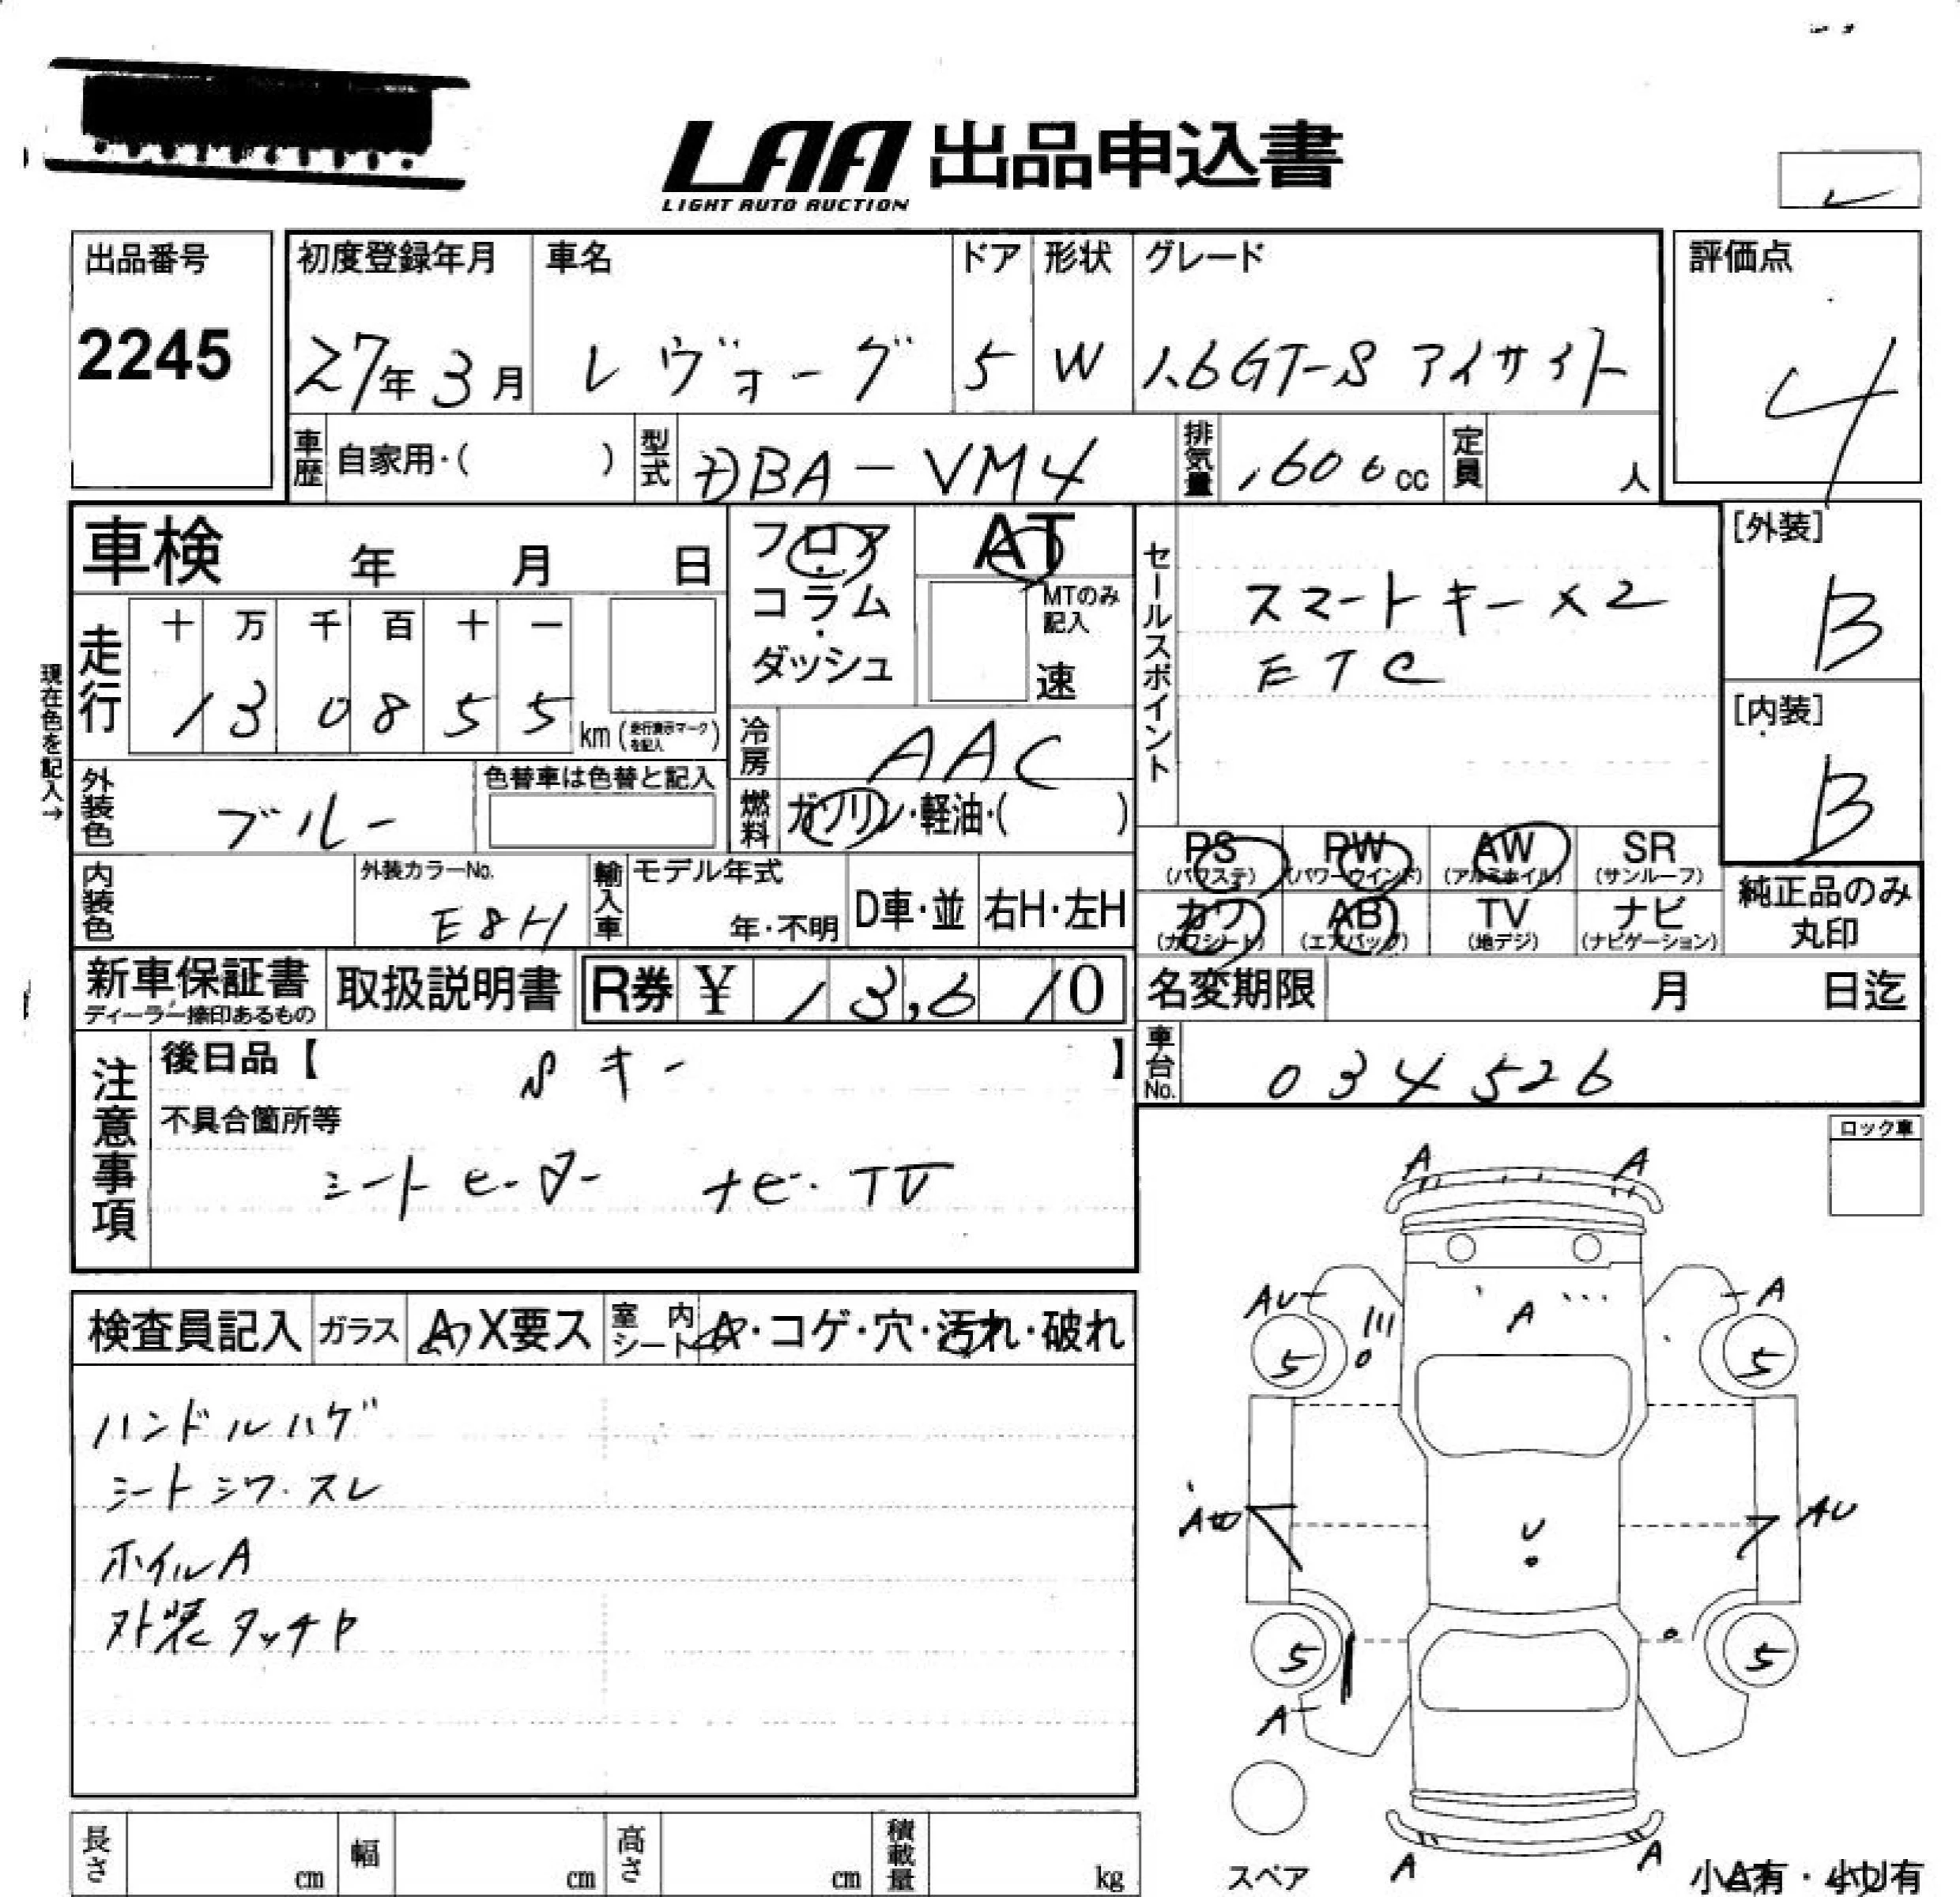 LAA 出品申込書
LIGHT AUTO AUCTION
出品番号
2245
初度登録年月 車名 ドア 形状 グレード
27年 3月 レヴォーグ 5 W 1.6GT-S アイサイト
評価点
4
車歴 自家用・( ) 型式 DBA-VM4 排気量 1600cc 定員 人
車検 年 月 日
フロア・コラム・ダッシュ
AT
MTのみ記入
速
セールスポイント
スマートキー×2
ETC
[外装]
B
[内装]
B
現在色を記入→
走行 十 万 千 百 十 一
1 3 0 8 5 5 km (走行表示マークを記入)
冷房 AAC
外装色 ブルー 色替車は色替と記入
燃料 ガソリン・軽油・( )
PS (パワステ) PW (パワーウインド) AW (アルミホイル) SR (サンルーフ)
カワ (カワシート) AB (エアバック) TV (地デジ) ナビ (ナビゲーション)
純正品のみ丸印
内装色 外装カラーNo. E8H 輸入車 モデル年式 年・不明 D車・並 右H・左H
新車保証書 ディーラー捺印あるもの 取扱説明書 R券 ¥ 13,610
名変期限 月 日迄
車台No. 034526
注意事項
後日品【 Sキー 】
不具合箇所等
シートヒーター ナビ・TV
ロック車
検査員記入 ガラス A・X要ス 室内シート A・コゲ・穴・汚れ・破れ
ハンドルハゲ
シートシワ・スレ
ホイルA
外装タッチP
A A
AU A A
5 5
U
AU
5 5
A
A A
スペア
小A有・小U有
長さ cm 幅 cm 高さ cm 積載量 kg